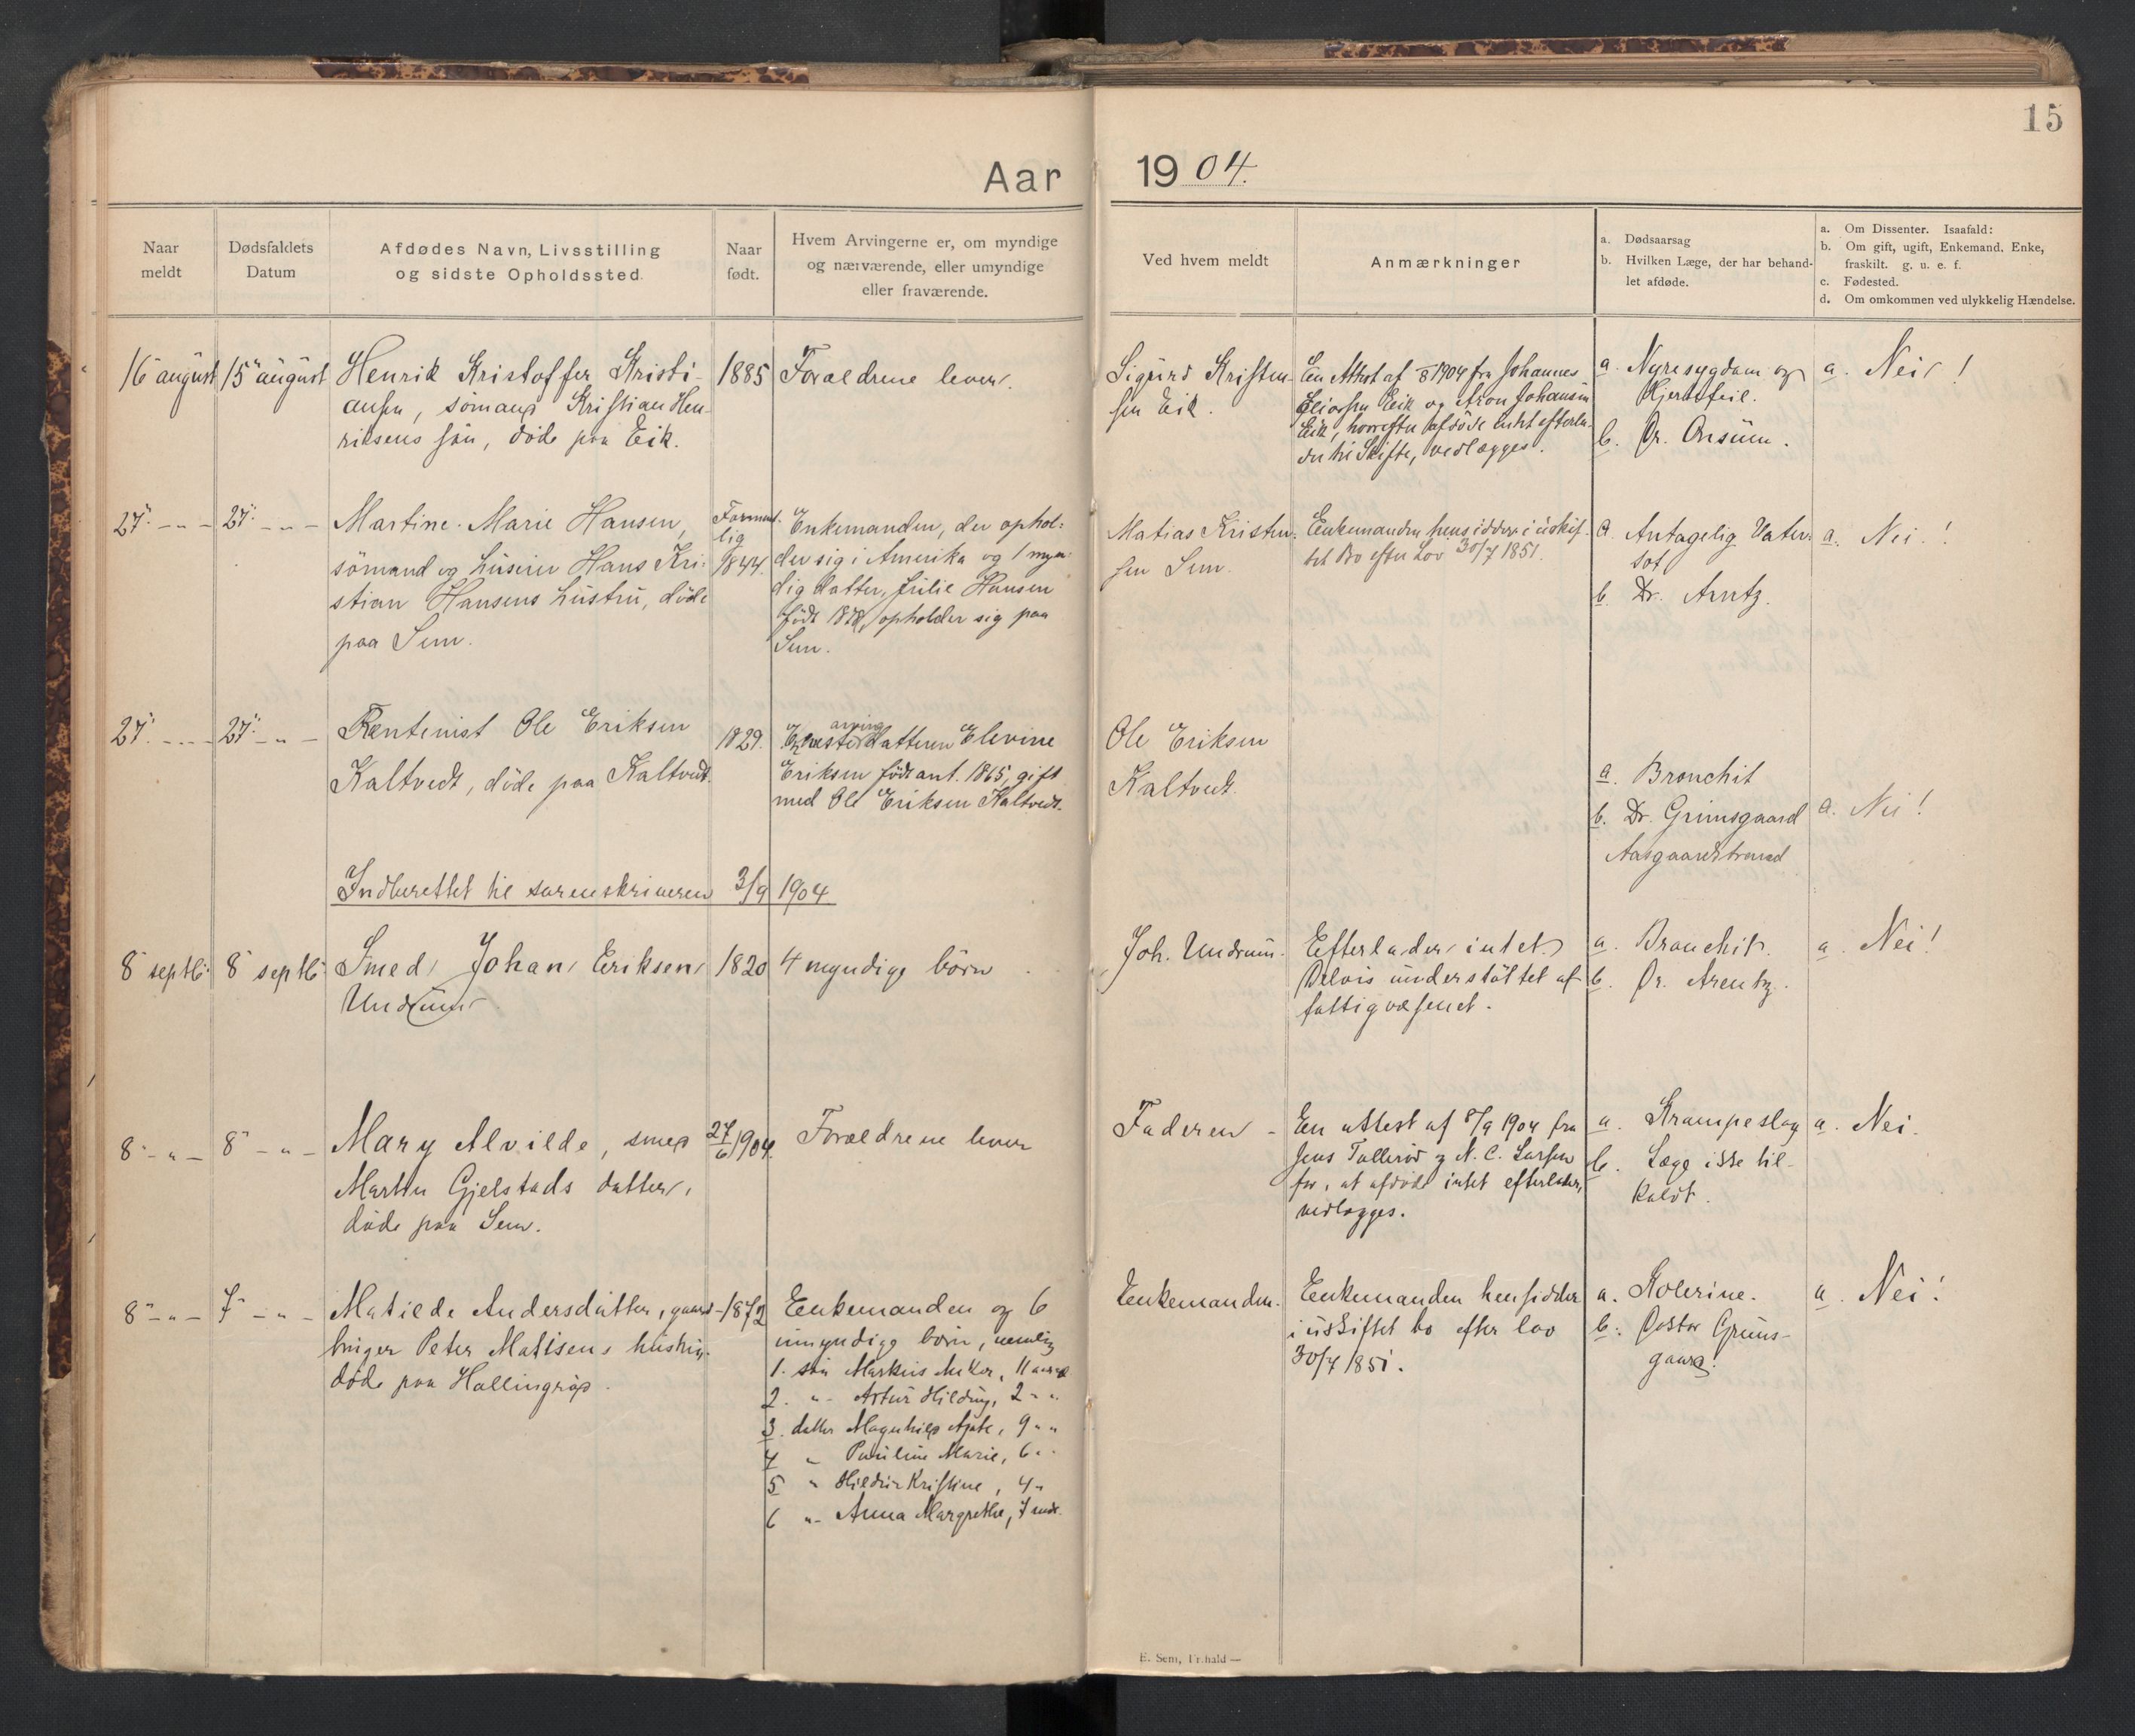 15
Aar 1904.
Naar meldt
Dødsfaldets Datum
Afdødes Navn, Livsstilling og sidste Opholdssted.
Naar født.
Hvem Arvingerne er, om myndige og nærværende, eller umyndige eller fraværende.
Ved hvem meldt
Anmærkninger
a. Dødsaarsag
b. Hvilken Læge, der har behandlet afdøde.
a. Om Dissenter. Isaafald:
b. Om gift, ugift, Enkemand, Enke, fraskilt. g. u. e. f.
c. Fødested.
d. Om omkommen ved ulykkelig Hændelse.
16 august
15 august
Henrik Kristoffer Kristi-
ansen, sømand Kristian Hen-
riksens søn, døde paa Eik.
1885
Forældrene lever.
Sigurd Kristen-
sen Eik.
En Attest af 1904 fra Johannes
Eik og Aron Johansen
Eik, hvorefter afdøde intet efterla-
der til Skifte, vedlægges.
a. Nyresygdom og
Hjertefeil.
b. Dr. Onsum.
a. Nei!
27. - " -
27. - " -
Martine Marie Hansen,
sømand og huseier Hans Kri-
stian Hansens hustru, døde
paa Sem.
Forment-
lig
1844.
Enkemanden, der ophol-
der sig i Amerika og 1 myn-
dig datter, Julie Hansen
født 1878, opholder sig paa
Sem.
Matias Kristen-
sen Sem.
Enkemanden hensidder i uskif-
tet Bo efter Lov 30/7 1851.
a. Antagelig Vater-
sot
b. Dr. Arntz.
a. Nei!
27. - " -
27. - " -
Rentenist Ole Eriksen
Kaltvedt, døde paa Kaltvedt.
1829.
arving
Eneste Datteren Elevine
Eriksen født ant. 1865, gift
med Ole Eriksen Kaltvedt.
Ole Eriksen
Kaltvedt.
a. Bronchit
b. Dr. Grimsgaard
Aasgaardstrand
a. Nei!
Indberettet til sorenskriveren 3/9 1904
8 septb.
8 septb.
Smed Johan Eriksen
Undrum
1820
4 myndige børn
Joh. Undrum.
Efterlader intet.
Delvis understøttet af
fattigvæsenet.
a. Bronchit.
b. Dr. Arentz.
a. Nei!
8 - " -
8 - " -
Mary Alvilde, smed
Martin Gjelstads datter,
døde paa Sem.
27/6 1904.
Forældrene lever
Faderen -
En attest af 8/9 1904 fra
Jens Tollerød og N. C. Larsen
for, at afdøde intet efterlader,
vedlægges.
a. Krampeslag
b. Læge ikke til-
kaldt.
a. Nei.
8 - " -
7 - " -
Matilde Andersdatter, gaard-
bruger Peter Matisens hustru.
døde paa Hallingrød.
1872
Enkemanden og 6
umyndige børn, nemlig
1. søn Markus Anker, 11 aar
2. " - Artur Hilding, 2 - "
3. datter Magnhild Agate, 9 - "
4 " Pauline Marie, 6 "
5 " Hildur Kristine, 4 "
6 " - Anna Margrethe, 7 mdr.
Enkemanden.
Enkemanden hensidder
i uskiftet bo efter lov
30/7 1851.
a. Kolerine.
b. Doktor Grims-
gaard.
a. Nei!
E. Sem, Fr.hald —